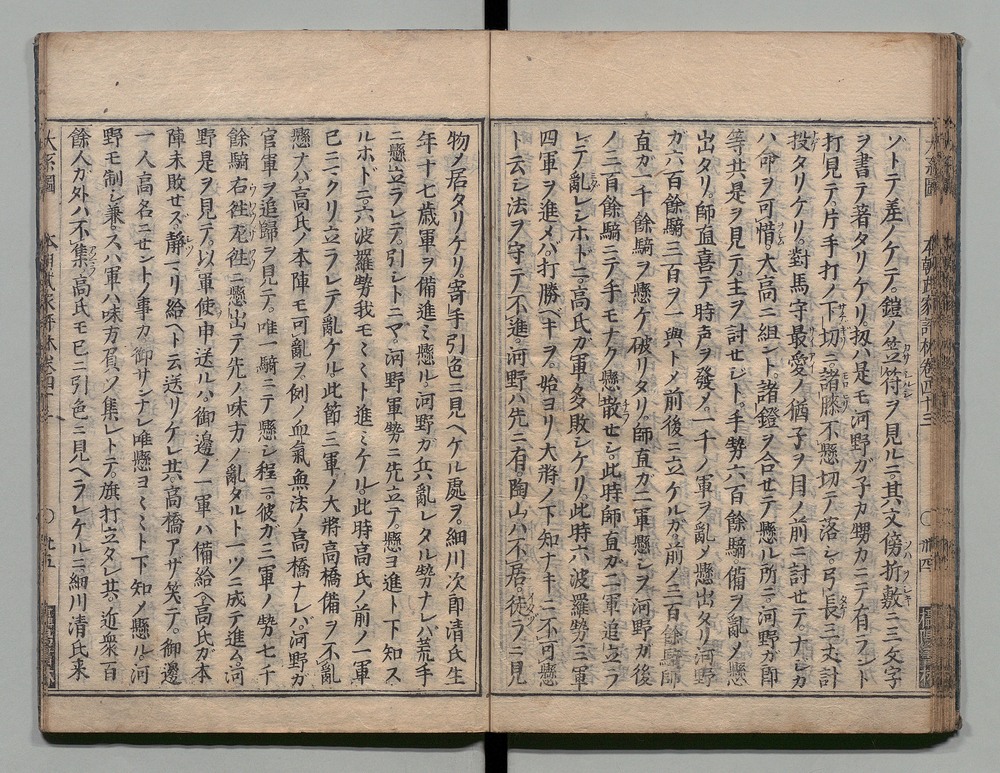 ゾトテ差ノケテ。鎧ノ笠符ヲ見ルニ。其文傍折敷ニ三文字
ヲ書テ著タリケリ。扨ハ是モ河野ガ子カ甥カニテ有ラント
打見テ。片手打ノ下切ニ諸膝不懸切テ落シ。弓長三丈計
投タリケリ。對馬守最愛ノ猶子ヲ目ノ前ニ討セテ。ナジカ
ハ命ヲ可惜。大高ニ組ント。諸鐙ヲ合セテ懸ル所ニ。河野ガ郎
等共是ヲ見テ。主ヲ討セジト。手勢六百餘騎備ヲ亂メ懸
出タリ。師直喜テ時声ヲ發メ。一千ノ軍ヲ亂メ懸出タリ河野
ガ六百餘騎三百ヲ一與トメ前後ニ立ケルガ。前ノ三百餘騎師
直カ一千餘騎ヲ懸ケ破リタリ。師直カ二軍懸シヲ河野ガ後
ノ三百餘騎ニテ手モナク懸散セシ。此時師直ガ二軍追立ラ
レテ亂レシホドニ。高氏ガ軍多敗シケリ。此時六波羅勢三軍
四軍ヲ進メバ。打勝ベキヲ。始ヨリ大將ノ下知ナキニ不可懸
ト云シ法ヲ守テ不進。河野ハ先ニ有。陶山ハ不居。徒ラニ見
本朝 卷四十三 〇 卅四
物ノ居タリケリ。寄手引色ニ見ヘケル處ヲ。細川次郎清氏生
年十七歳軍ヲ備進ミ懸ル。河野ガ兵亂レタル勢ナレバ荒手
ニ懸立ラレテ。引シトニマ。河野軍勢ニ先立テ。懸ヨ進ト下知ス
ルホドニ。六波羅勢我モミミト進ミケル。此時高氏ノ前ノ一軍
已ニマクリ立ラレテ亂ケル此節三軍ノ大將高橋備ヲ不亂
懸ナハ高氏ノ本陣モ可亂ヲ。例ノ血氣無法ノ高橋ナレバ。河野ガ
官軍ヲ追歸ヲ見テ。唯一騎ニテ懸シ程ニ。彼ガ三軍ノ勢七千
餘騎右徃左徃ニ懸出テ先ノ味方ノ亂タルト一ツニ成テ進ム。河
野是ヲ見テ。以軍使申送ルハ。御邊ノ一軍ハ備給ヘ高氏ガ本
陣未敗セズ。靜ミリ給ヘト云送リケレ共。高橋アザ笑テ。御邊
一人高名ニセントノ事カ御サンナレ唯懸ヨミミト下知メ懸ル河
野モ制シ兼。スハ軍ハ味方負ゾ集レトテ。旗打立タレ共。近衆百
餘人カ外ハ不集。高氏モ已ニ引色ニ見ヘラレケルニ。細川清氏来